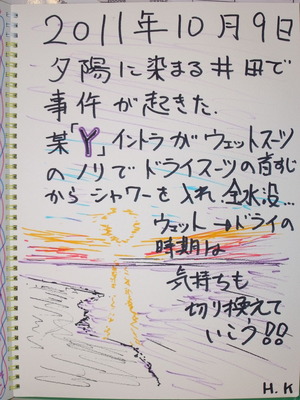 2011年10月9日
夕陽に染まる井田で
事件が起きた.
某「Y」イントラがウェットスーツ
のノリでドライスーツの首すじ
からシャワーを入れ.全水没…
ウェット→ドライの
時期は
気持ちも
切り換えて
いこう!!
H.K